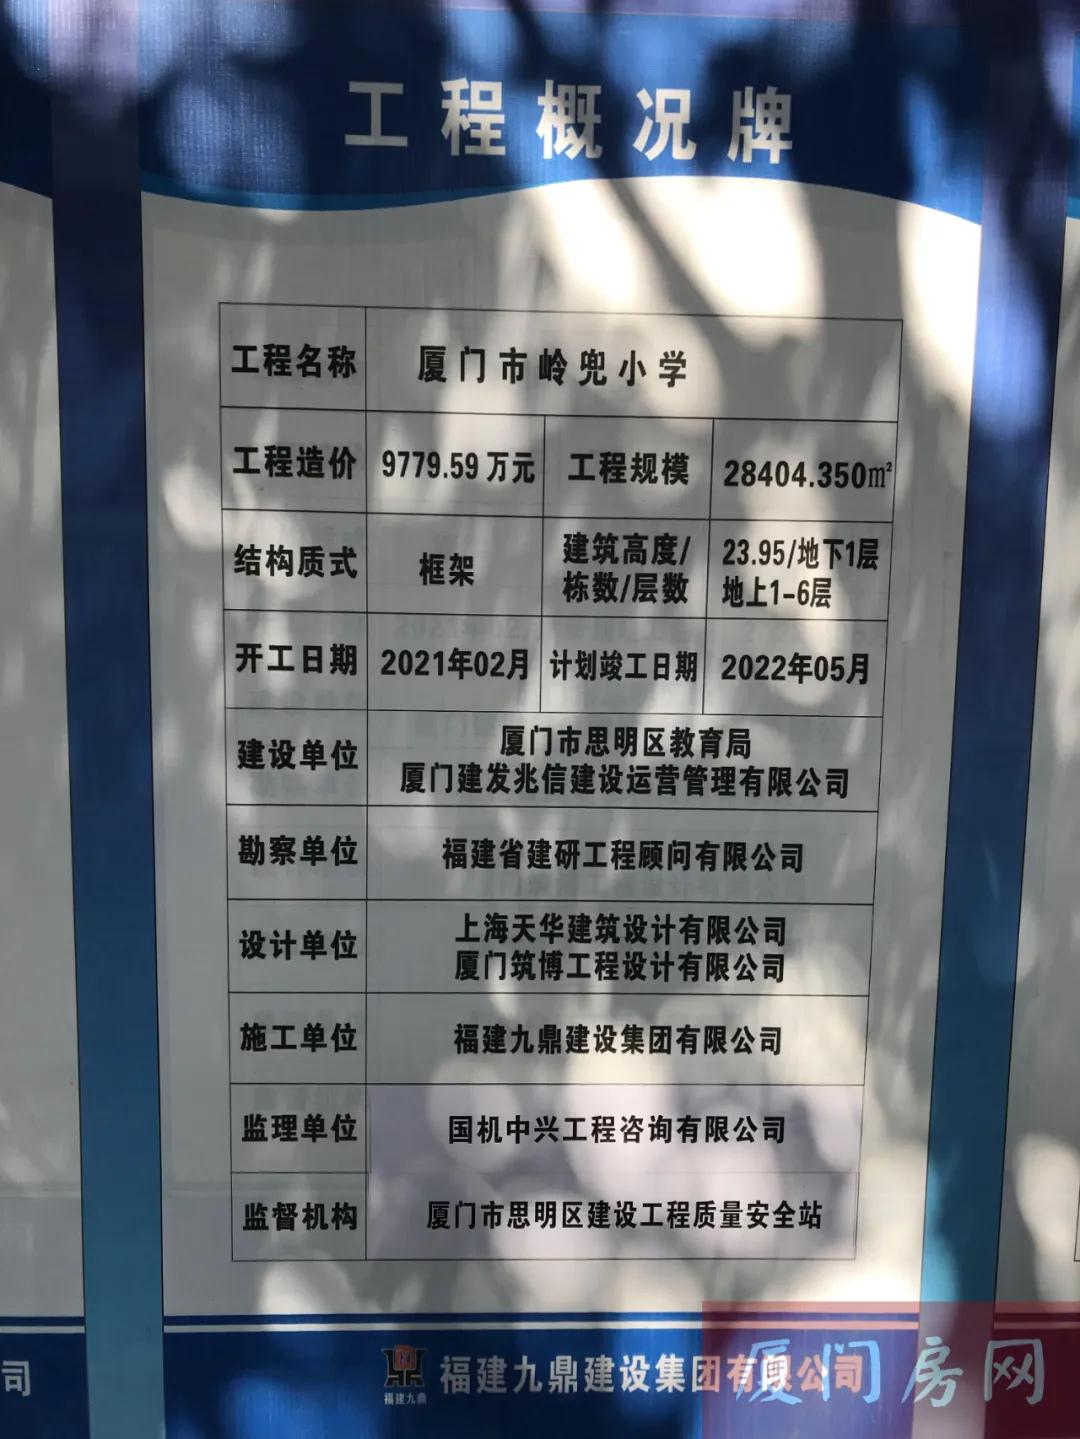 工程概况牌
工程名称 厦门市岭兜小学
工程造价 9779.59 万元 工程规模 28404.350㎡
结构质式 框架 建筑高度/ 23.95/地下1层
栋数/层数 地上1-6层
开工日期 2021年02月 计划竣工日期 2022年05月
建设单位 厦门市思明区教育局
厦门建发兆信建设运营管理有限公司
勘察单位 福建省建研工程顾问有限公司
设计单位 上海天华建筑设计有限公司
厦门筑博工程设计有限公司
施工单位 福建九鼎建设集团有限公司
监理单位 国机中兴工程咨询有限公司
监督机构 厦门市思明区建设工程质量安全站
司
福建九鼎
福建九鼎建设集团有限公司
厦门房网